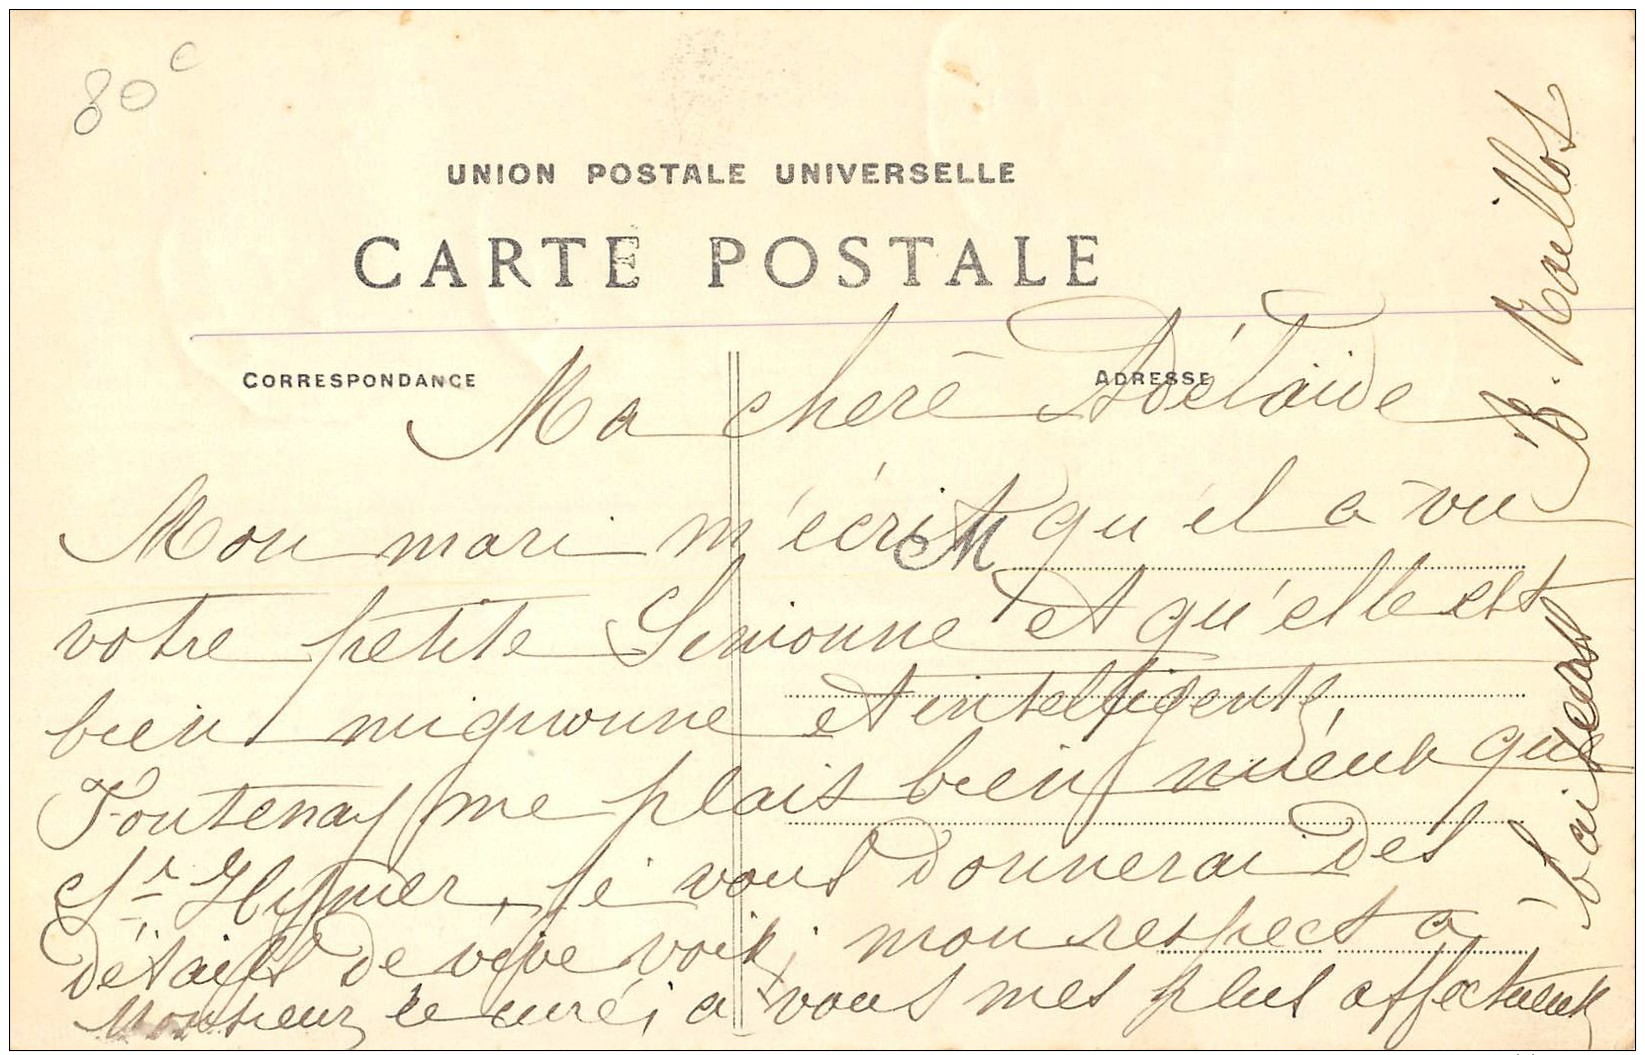 80 c
UNION POSTALE UNIVERSELLE
CARTE POSTALE
CORRESPONDANCE
ADRESSE
Ma chère Adélaïde
Mon mari m'écrit qu'il a vu
M
votre petite Simonne et qu'elle est
bien mignonne et intelligente,
Fontenay me plais bien mieux que
St Hymer, je vous donnerai des
détails de vive voix; mon respect à
Monsieur le curé, à vous mes plus affectueux
baisers
B. Maillot